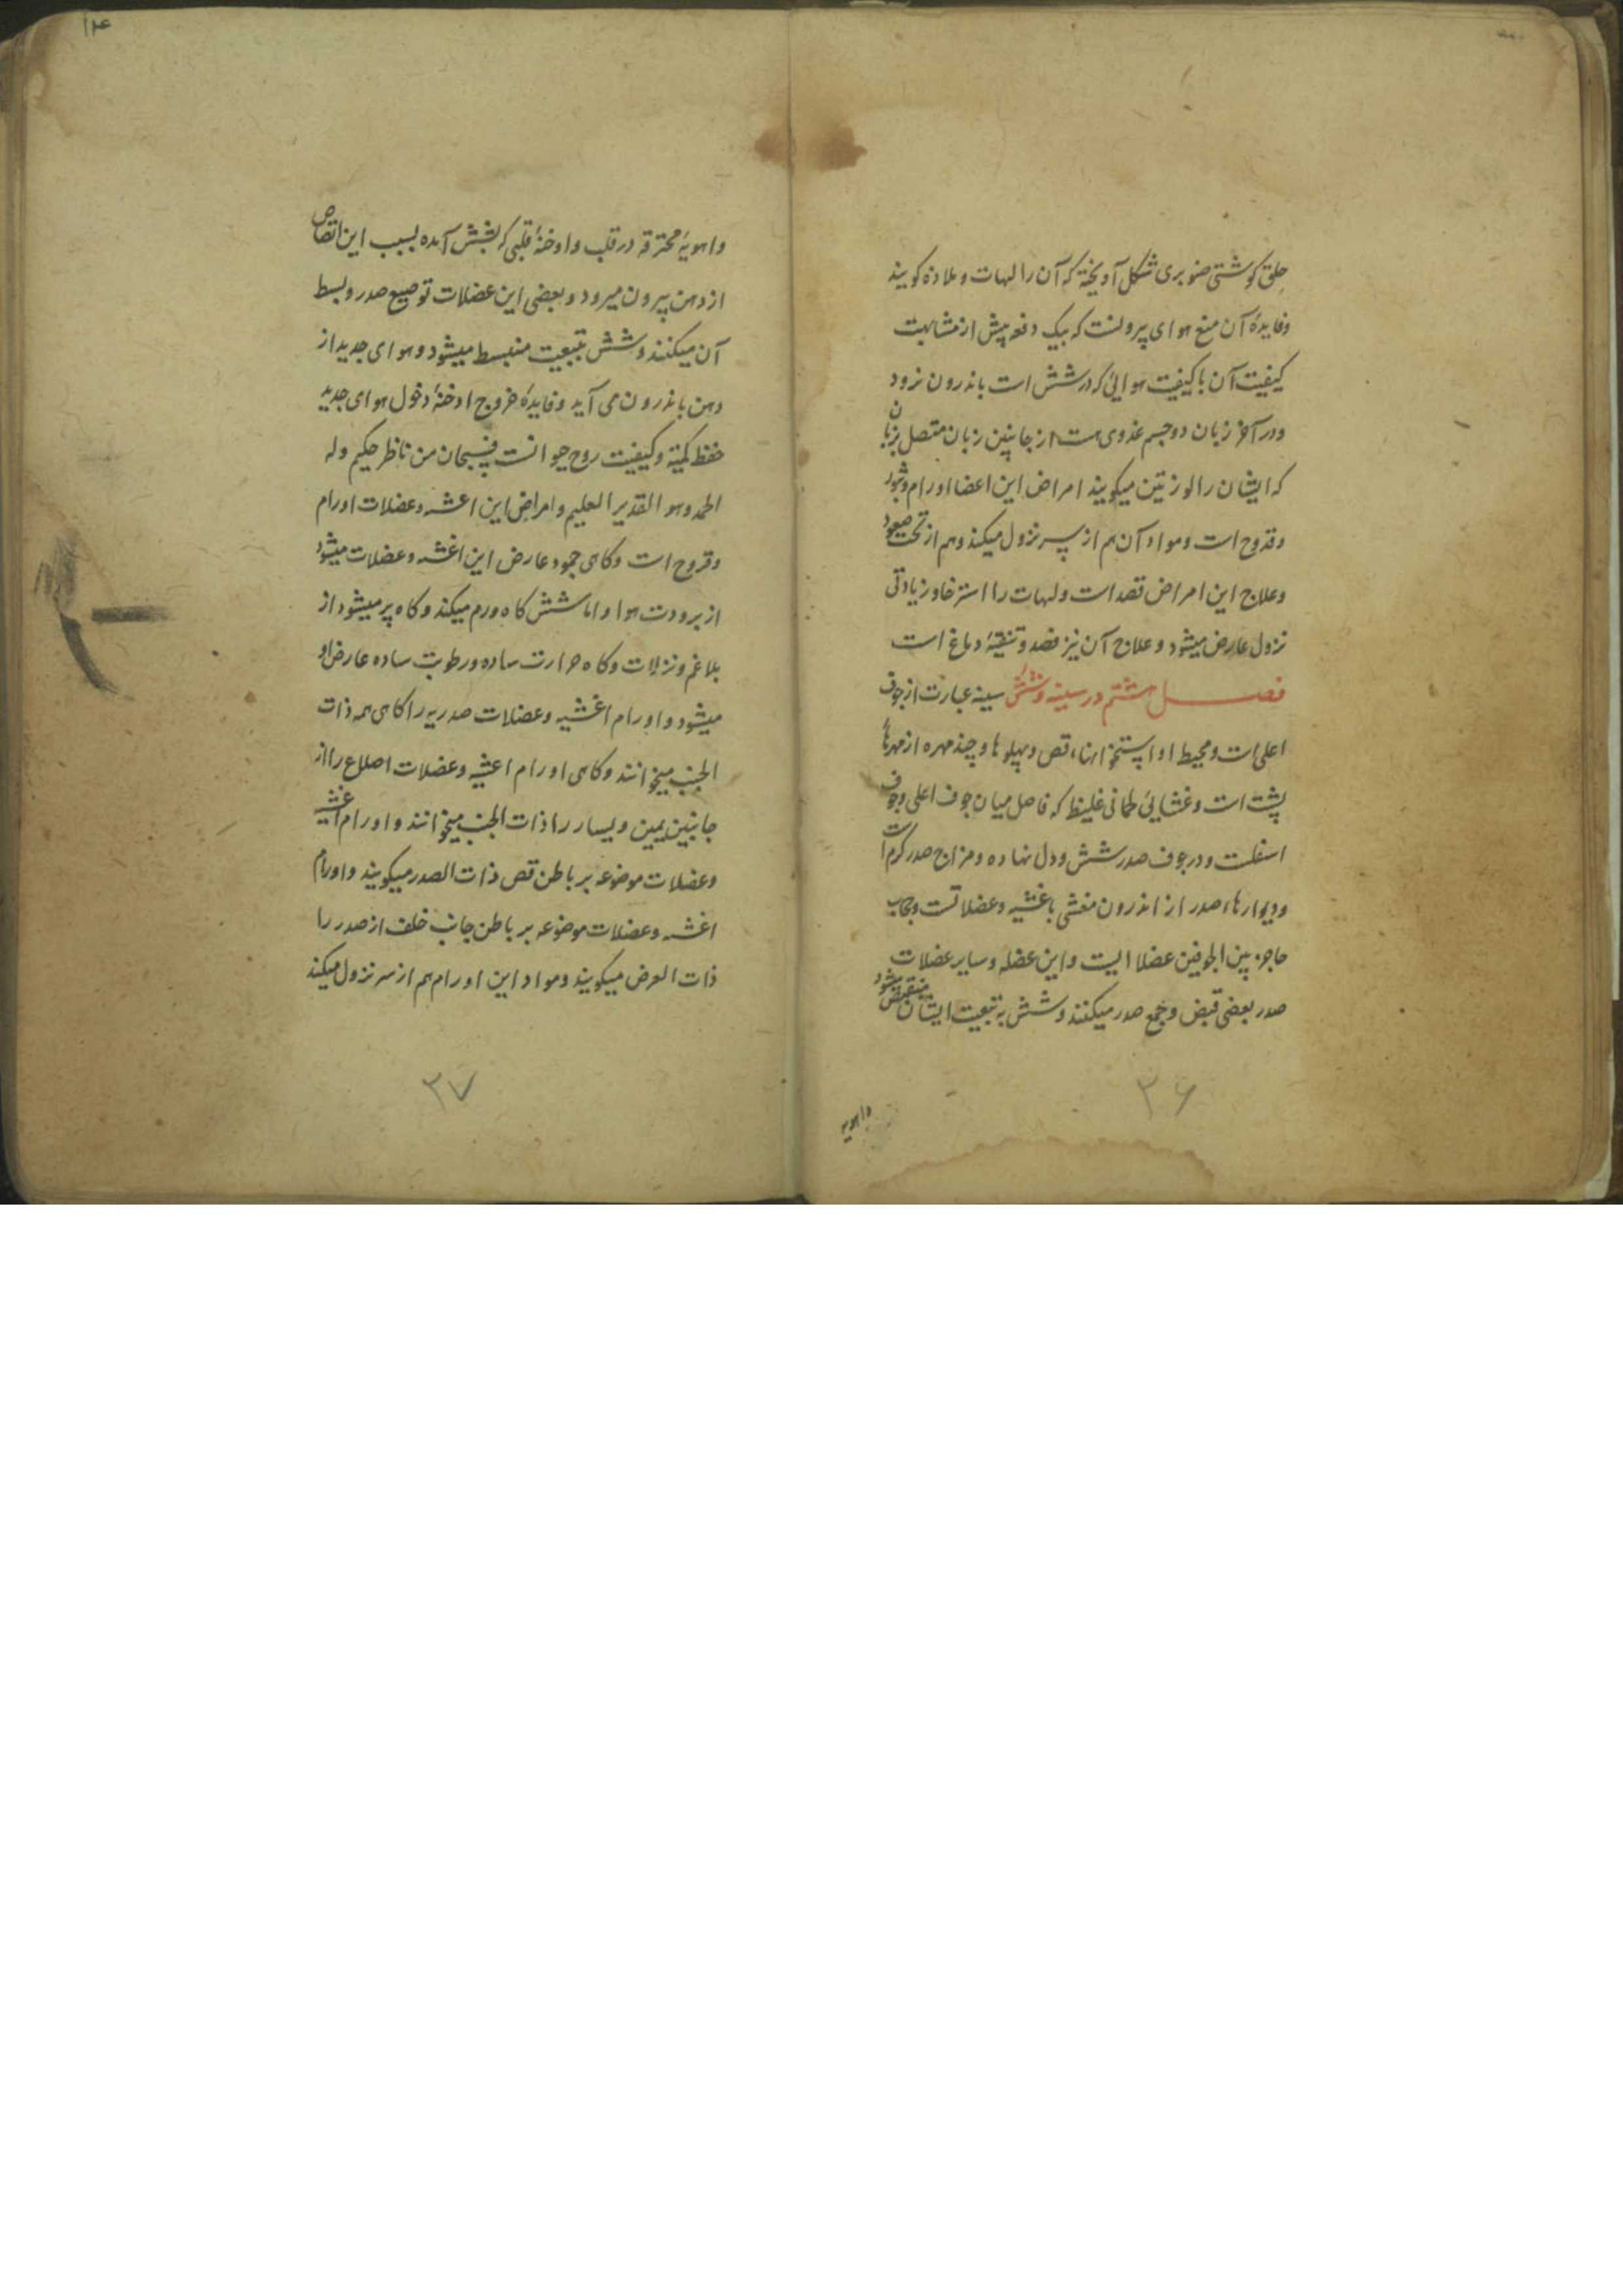 حلق گوشتی صنوبری شکل آویخته که آن را لهات و ملاذه کویند
و فایدهٔ آن منع هوای بیرونست که بیک دفعه پیش از مشابهت
کیفیت آن با کیفیت هوائی که در شش است باندرون نرود
و در آخر زبان دو جسم غدوی هست از جانبین زبان متصل بزبان
که ایشان را لوزتین میکویند امراض این اعضا اورام و بثور
و قروح است و مواد آن هم از سر نزول میکند و هم از تحت صعود
و علاج این امراض فصد است و لهات را استرخا و زیادتی
نزول عارض میشود و علاج آن نیز فصد و تنقیهٔ دماغ است
فصل هشتم در سینه و شش سینه عبارت از جوف
اعلی است و محیط او استخوانهاء قص و پهلوها و چند مهره از مهرهاء
پشت است و غشایی غلیظ که فاصل میان جوف اعلی و جوف
اسفلست و در جوف صدر شش و دل نهاده و مزاج صدر کرم است
و دیوارهاء صدر از اندرون مغشی باغشیه و عضلاتست و حجاب
حاجز بین الجوفین عضلا الیت و این عضله و سایر عضلات
صدر بعضی قبض و جمع صدر میکنند و شش به تبعیت ایشان منقبض میشود
۳۶
واهویه
۱۴
واهویهٔ محترقه در قلب و ادخنهٔ قلبی که بشش آمده بسبب این انقباض
از دهن بیرون میرود و بعضی این عضلات توسیع صدر و بسط
آن میکنند و شش بتبعیت منبسط میشود و هوای جدید از
دهن باندرون می آید و فایدهٔ خروج ادخنهٔ دخول هوای جدید
حفظ کمیة و کیفیت روح حیوانست فسبحان من ناظر حکیم وله
الحمد وهو القدیر العلیم و امراض این اغشیه و عضلات اورام
و قروح است و کاهی جمود عارض این اغشیه و عضلات میشود
از برودت هوا و اما شش کاه ورم میکند و کاه پر میشود از
بلاغم و نزلات و کاه حرارت ساده و رطوبت ساده عارض او
میشود و اورام اغشیه و عضلات صدریه را کاهی همه ذات
الجنب میخوانند و کاهی اورام اغشیه و عضلات اضلاع را از
جانبین یمین و یسار را ذات الجنب میخوانند و اورام اغشیه
و عضلات موضوعه بر باطن قص ذات الصدر میکویند و اورام
اغشیه و عضلات موضوعه بر باطن جانب خلف از صدر را
ذات العرض میکویند و مواد این اورام هم از سر نزول میکند
۳۷